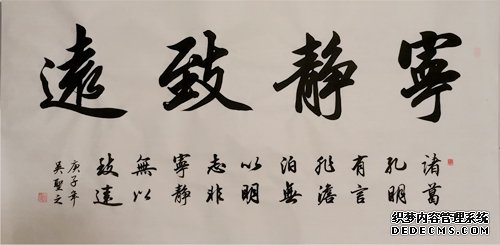 寧靜致遠
諸葛
孔明
有言
非澹
泊無
以明
志非
寧靜
無以
致遠
庚子年
吴聖之
织梦内容管理系统
DEDECMS.COM